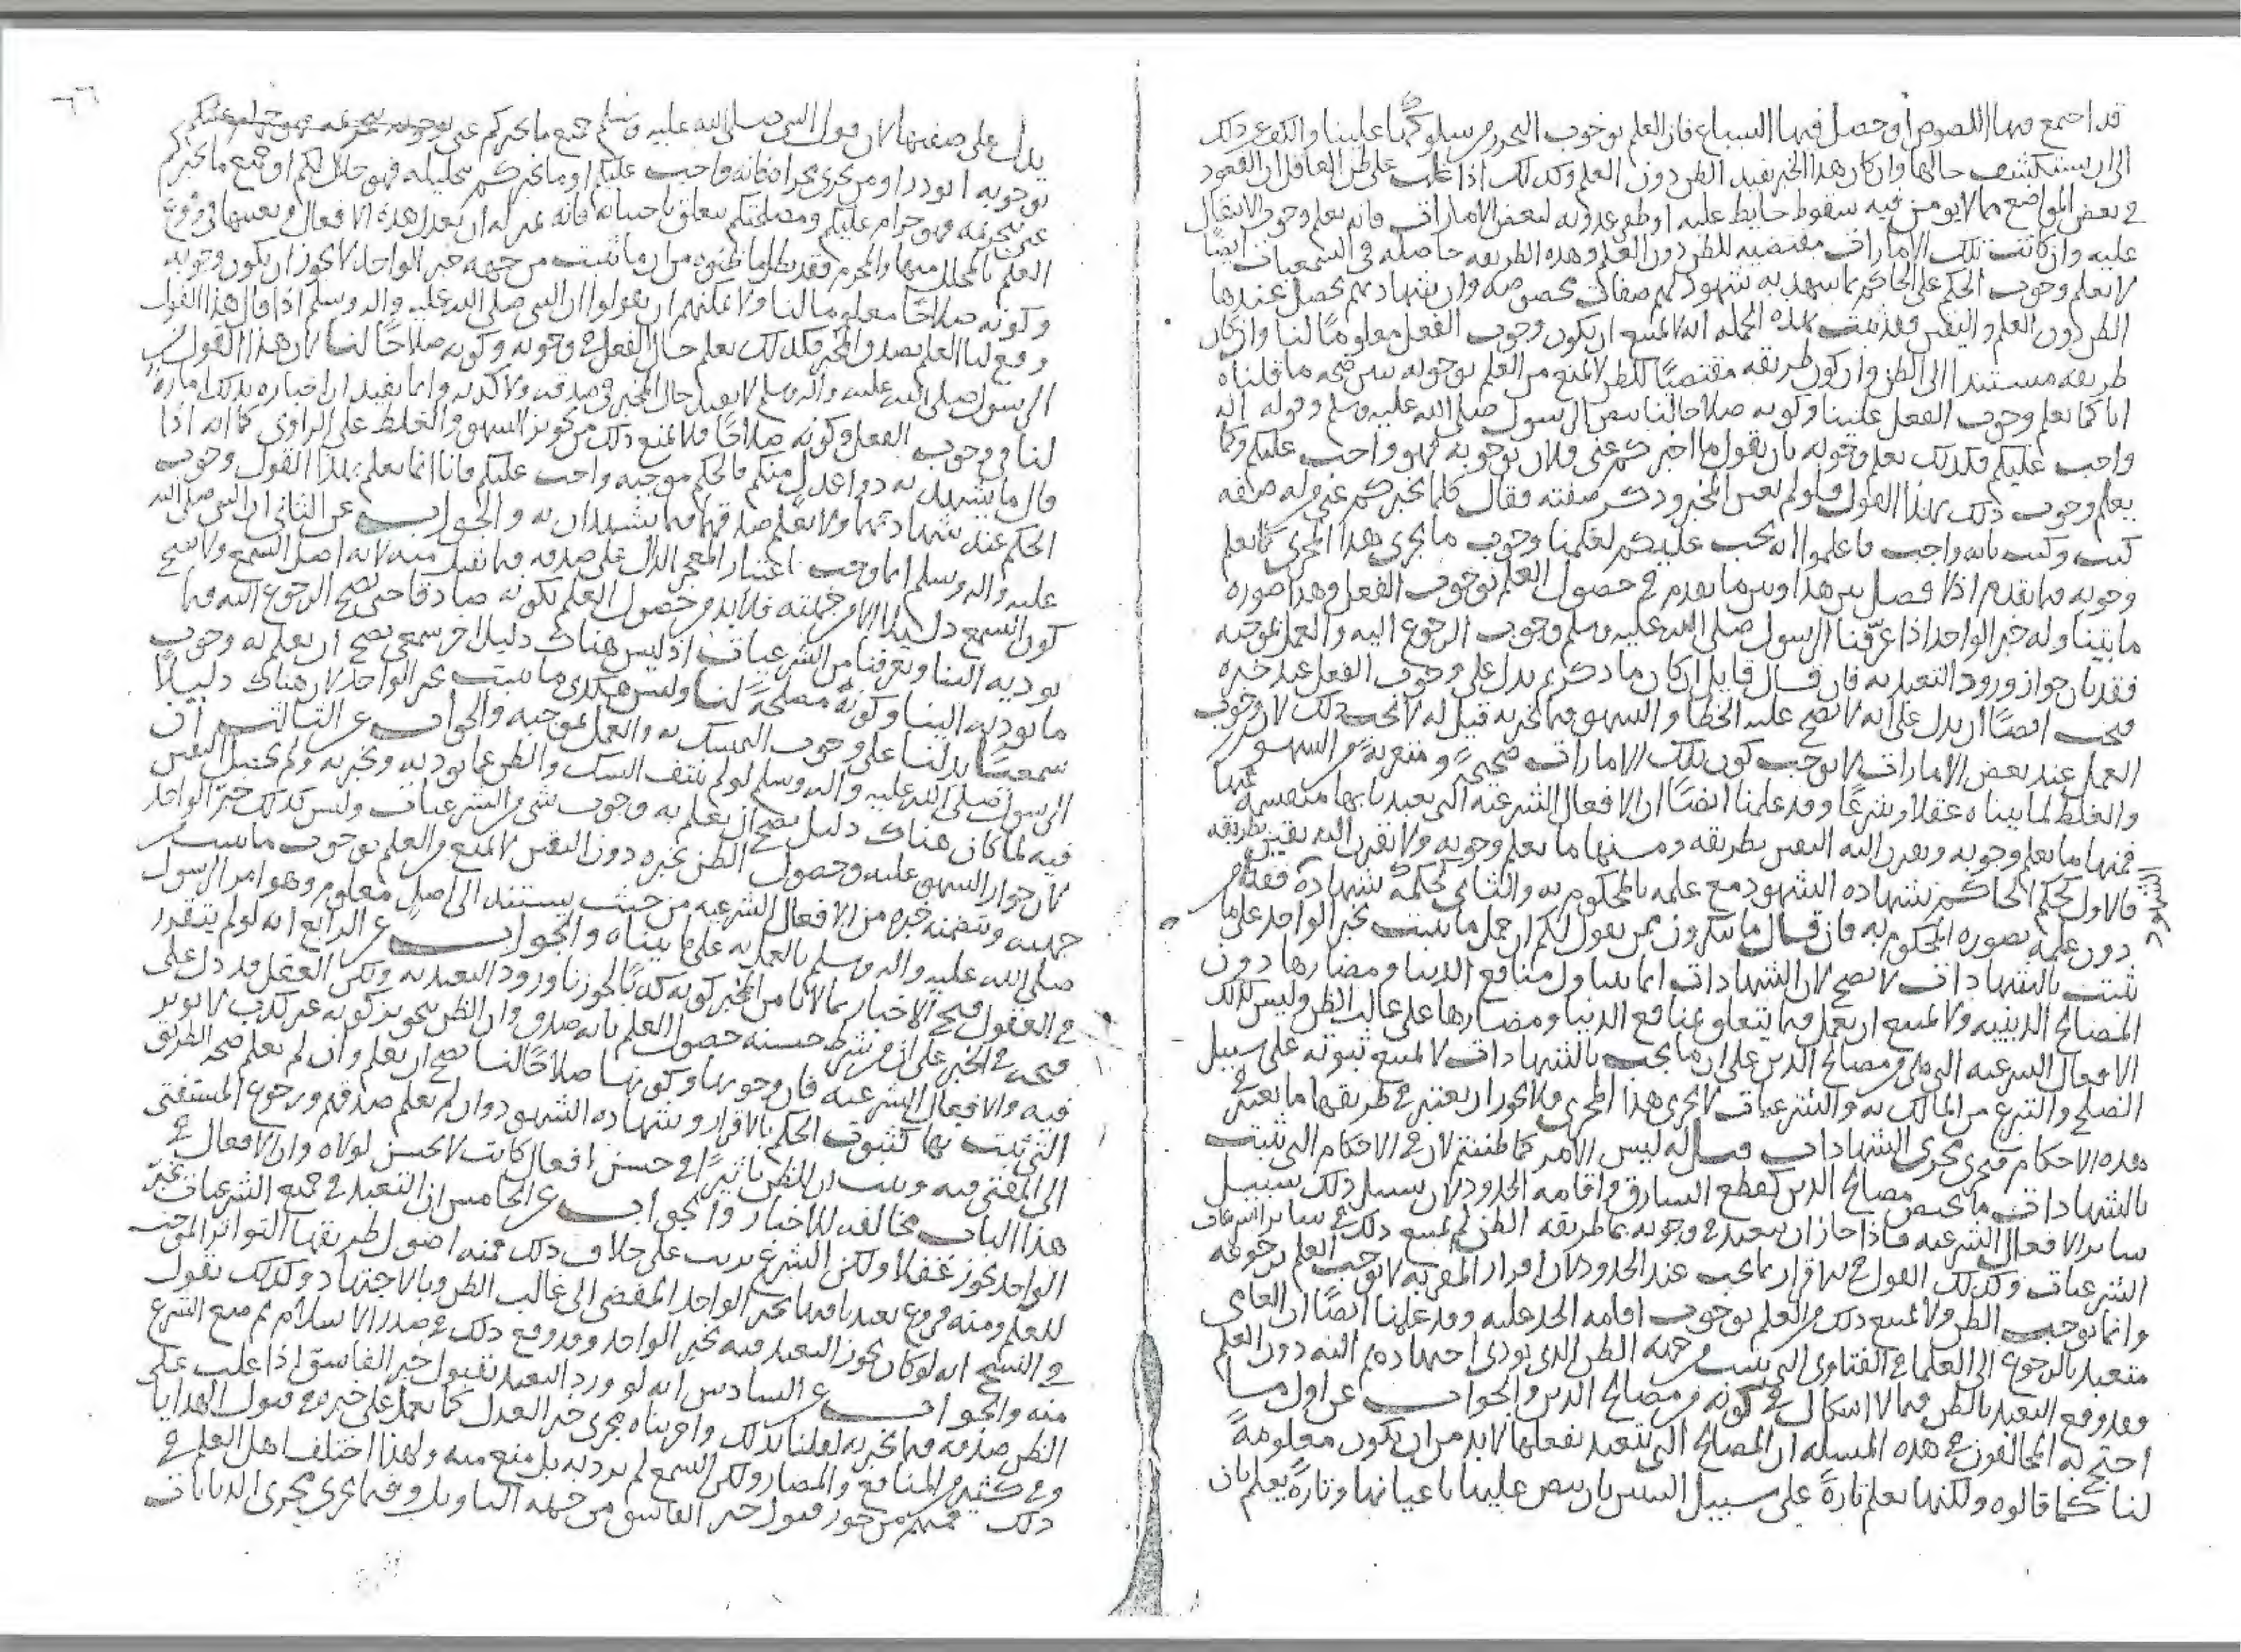 قد اجتمع فيها اللصوص أو حصل فيها السباع فإن العلم بوجوب التحرز من سلوكها علينا والكف عن ذلك
إلى أن يستكشف حالها وإن كان هذا الخبر يفيد الظن دون العلم وكذلك إذا غلب على ظن العاقل أن القعود
في بعض المواضع مما لا يؤمن فيه سقوط حايط عليه أو ظفر عدو به لبعض الامارات فانه يعلم وجوب الانتقال
عليه وإن كانت تلك الامارات مقتضيه للظن دون العلم وهذه الطريقه حاصله في السمعيات ايضًا
لانا نعلم وجوب الحكم على الحاكم بما يشهد به شهود لهم صفات مخصوصه وإن شهادتهم يحصل عندها
الظن دون العلم واليقين فقد ثبت بهذه الجمله انه لا يمتنع ان يكون وجوب الفعل معلومًا لنا وإن كان
طريقه مستندا الى الظن وان كون طريقه مقتضيًا للظن لا يمنع من العلم بوجوبه يبين صحه ما قلناه
انا كما نعلم وجوب الفعل علينا وكونه صلاحا لنا بنص الرسول صلى الله عليه وسلم وقوله انه
واجب عليكم فكذلك نعلم وجوبه بان يقول ما اخبركم عني فلان بوجوبه فهو واجب عليكم وكما
يعلم وجوب ذلك بهذا القول فلو لم يعين المخبر وذكر صفته فقال كلما يخبركم عني من له صفه
كيت وكيت بانه واجب فاعلموا انه يجب عليكم لعلمنا وجوب ما يجري هذا المجرى كما نعلم
وجوبه فيما تقدم اذ لا فصل بين هذا وبين ما تقدم في حصول العلم بوجوب الفعل وهذا صوره
ما يتناوله خبر الواحد اذا عرّفنا الرسول صلى الله عليه وسلم وجوب الرجوع اليه والعمل بموجبه
فقد بان جواز ورود التعبد به فان قال قايل ان كان ما ذكرتم يدل على وجوب الفعل عند خبره
فيجب ايضًا ان يدل على انه لا يصح عليه الخطا والسهو فيما يخبر به قيل له لا يجب ذلك لان وجوب
العمل عند بعض الامارات لا يوجب كون تلك الامارات صحيحةً ومتعريةً من السهو
والغلط لما بيناه عقلا وشرعًا وقد علمنا ايضًا ان الافعال الشرعيه التي تعبدنا بها منقسمه
فمنها ما يعلم وجوبه ويقترن اليه اليقين بطريقه ومنها ما يعلم وجوبه ولا يقترن اليه يقين بطريقه
فالاول كحكم الحاكم بشهاده الشهود مع علمه بالمحكوم به والثاني كحكمه بشهادة
الشهود
دون علمه بصوره المحكوم به فان قال ما تنكرون ممن يقول لكم ان حمل ما يثبت بخبر الواحد على ما
ثبت بالشهادات لا يصح لان الشهادات انما يتناول منافع الدنيا ومضارها دون
المصالح الدينيه ولا يمتنع ان يعمل فيما يتعلق بمنافع الدنيا ومضارها على غالب الظن وليس كذلك
الافعال الشرعيه التي هي من مصالح الدين على ان ما يجب بالشهادات لا يمتنع ثبوته على سبيل
الصلح والتبرع من المالك به والشرعيات لا يجري هذا المجرى فلا يجوز ان يعتبر في طريقها ما يعتبر في
هذه الاحكام فيجري مجرى الشهادات قيل له ليس الامر كما ظننتم لان في الاحكام التي تثبت
بالشهادات ما يخص مصالح الدين كقطع السارق واقامه الحدود لان سبيل ذلك سبيل
ساير الافعال الشرعيه فاذا جاز ان يتعبد في وجوبه بما طريقه الظن لم يمتنع ذلك في ساير
الشرعيات وكذلك القول في الاقرار بما يجب عند الحدود لان اقرار المقر به لا يوجب العلم
وانما يوجب الظن ولا يمنع ذلك من العلم بوجوب اقامه الحد عليه وقد علمنا ايضًا ان العامي
متعبد بالرجوع الى العلما في الفتاوى التي يثبت من جهه الظن الذي يودي اجتهادهم اليه دون العلم
وقد وقع التعبد بالظن فيما لا اشكال في كونه من مصالح الدين والجواب عن اول ما
احتج به المخالفون في هذه المسله ان المصالح التي نتعبد بفعلها لا بد من ان يكون معلومةً
لنا كما قالوه ولكنها يعلم تارةً على سبيل اليقين بان ينص عليها باعيانها وتارةً يعلم بان
٦٦
يدل على صفتها لان قول النبي صلى الله عليه وسلم جميع ما يخبركم عني
بوجوبه ابو ذر او من يجري مجراه فانه واجب عليكم او ما يخبركم بتحليله فهو حلال لكم او جميع ما يخبركم
عني بتحريمه فهو حرام عليكم ومصلحتكم يتعلق باجتنابه فانه بمنزله ان يعدد هذه الافعال ويعينها في وقوع
العلم بالمحلل منها والمحرم فقد بطل ما ظنوه من ان ما ثبت من جهه خبر الواحد لا يجوز ان يكون وجوبه
وكونه صلاحًا معلوما لنا ولا يمكنهم ان يقولوا ان النبي صلى الله عليه واله وسلم اذا قال هذا القول
وقع لنا العلم بصدق المخبر فكذلك يعلم حال الفعل في وجوبه وكونه صلاحًا لنا لان هذا القول من
الرسول صلى الله عليه واله وسلم لا يفيد حال المخبر في صدقه ولا كذبه وانما يفيد ان اخباره بذلك امارة
لنا في وجوب الفعل وكونه صلاحًا فلا يمنع ذلك من تجويز السهو والغلط على الراوي كما انه اذا
قال ما يشهد به ذوا عدل منكم فالحكم بموجبه واجب عليكم فانا انما نعلم بهذا القول وجوب
الحكم عند شهادتهما ولا نعلم صدقهما فيما يشهدان به والجواب عن الثاني ان النبي صلى الله
عليه واله وسلم انما وجب اعتبار المعجز الدال على صدقه فيما يقبل منه لانه اصل السمع ولا يصح
كون السمع دليلا الا من جهته فلا بد من حصول العلم بكونه صادقا حتى يصح الرجوع اليه فيما
يوديه الينا ويعرفنا من الشرعيات اذ ليس هناك دليل اخر سمعي يصح ان يعلم به وجوب
ما يوديه الينا وكونه مصلحةً لنا وليس هكذى ما يثبت بخبر الواحد لان هناك دليلاً
سمعيًا يدلنا على وجوب التمسك به والعمل بموجبه والجواب عن الثالث ان
الرسول صلى الله عليه واله وسلم لو لم ينتف الشك والظن عما يوديه ويخبر به ولم يحصل اليقين
فيه لما كان هناك دليل يصح ان يعلم به وجوب شي من الشرعيات وليس كذلك خبر الواحد
لان جواز السهو عليه وحصول الظن بخبره دون اليقين لا يمنع من العلم بوجوب ما يثبت من
جهته ويتضمنه خبره من الافعال الشرعيه من حيث يستند الى اصل معلوم وهو امر الرسول
صلى الله عليه واله وسلم بالعمل به على ما بيناه والجواب عن الرابع انه لو لم يتقرر
في العقول قبح الاخبار بما لا نامن المخبر كونه كذبًا لجوزنا ورود التعبد به ولكن العقل قد دل على
قبحه في الخبر على ان من شرط حسنه حصول العلم بانه صدق وان الظن بتجويز كونه غير كذب لا يوثر
فيه والافعال الشرعيه فان وجوبها وكونها صلاحًا لنا يصح ان يعلم وان لم نعلم صحه الطريق
التي ثبت بها كثبوت الحكم بالاقرار وشهاده الشهود وان لم نعلم صدقهم ورجوع المستفتي
الى المفتي فيه ويثبت ان للظن تاثيرًا في حسن افعال كانت لا تحسن لولاه وان الافعال في
هذا الباب مخالفه للاخبار والجواب عن الخامس ان التعبد في جميع الشرعيات بخبر
الواحد يجوز عقلا ولكن الشرع ترتب على خلاف ذلك فمنه اصول طريقها التواتر الموجب
للعلم ومنه فروع تعبدنا فيها بخبر الواحد المفضي الى غالب الظن وبالاجتهاد وكذلك نقول
في النسخ انه لو كان يجوز التعبد فيه بخبر الواحد وقد وقع ذلك في صدر الاسلام ثم منع الشرع
منه والجواب عن السادس انه لو ورد التعبد بقبول خبر الفاسق اذا غلب على
الظن صدقه فيما يخبر به لعلمنا بذلك واجريناه مجرى خبر العدل كما نعمل على خبره في قبول الهدايا
وفي كثير من المنافع والمضار ولكن السمع لم يرد به بل منع منه ولهذا اختلف اهل العلم في
ذلك فمنهم من جوز قبول خبر الفاسق من جهه التاويل وفيما يجري مجرى الديانات